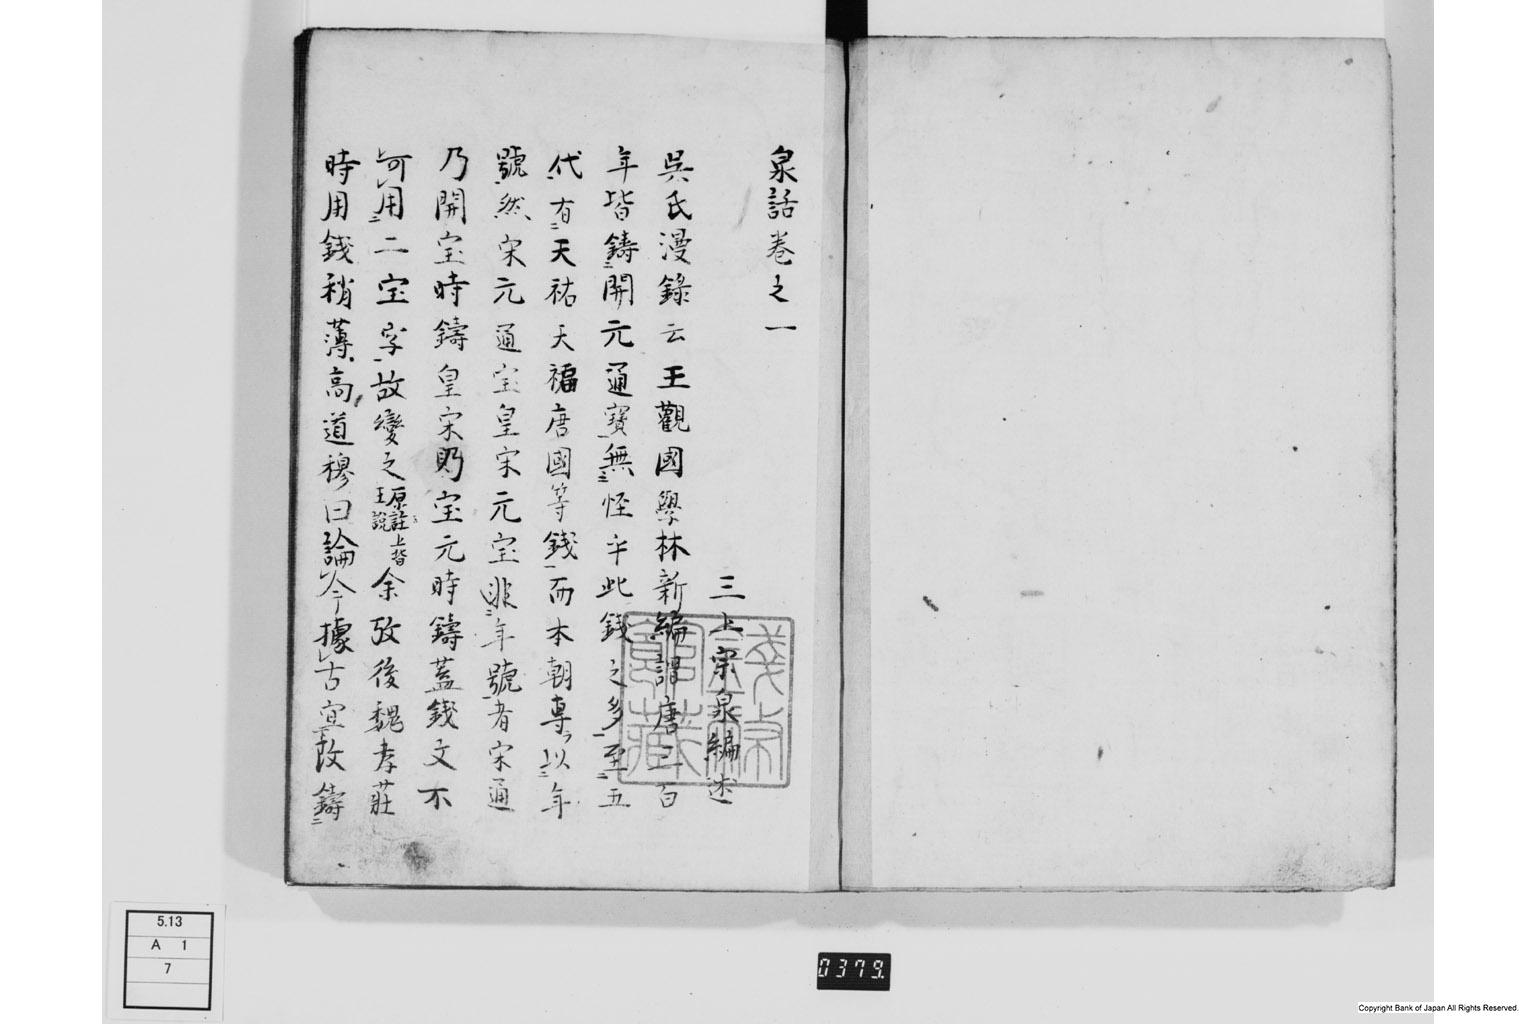 泉話卷之一
三上宗泉編述
吳氏漫錄云王觀國學林新編謂唐二百
年皆鑄開元通寶無怪乎此錢之多至五
代有天祐天福唐國等錢而本朝專以年
號然宋元通宝皇宋元宝非年號者宋通
乃開宝時鑄皇宋則宝元時鑄蓋錢文不
可用二宝字故變之原註上皆王說余攷後魏孝莊
時用錢稍薄高道穆曰論今據古宜改鑄
錢幣館藏
5.13
A 1
7
0379.
Copyright Bank of Japan All Rights Reserved.